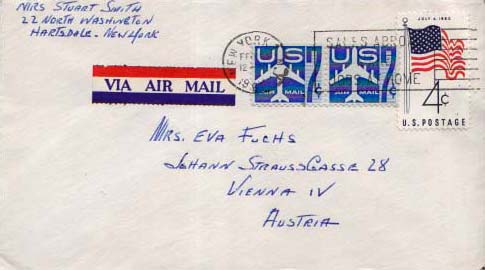 Mrs Stuart Smith
22 North Washington
Hartsdale - New York
JULY 4, 1960
NEW YORK
SALES ABRO
HOME
US
7¢
AIR MAIL
US
7¢
AIR MAIL
4¢
U.S. POSTAGE
VIA AIR MAIL
Mrs. Eva Fuchs
Johann StraussGasse 28
Vienna IV
Austria